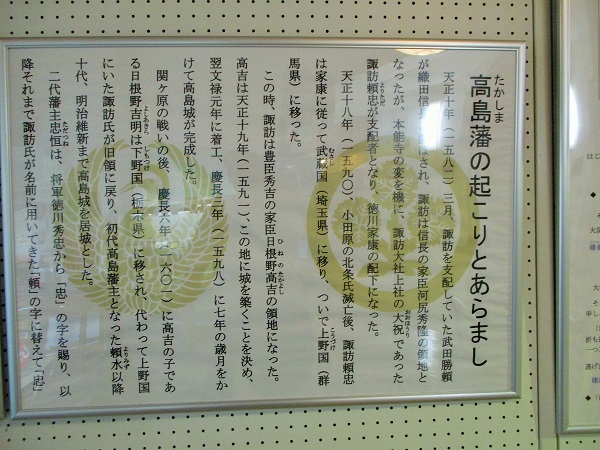 高島藩の起こりとあらまし
たかしま
天正十年(一五八二)三月、諏訪を支配していた武田勝頼
が織田信長に滅ぼされ、諏訪は信長の家臣河尻秀隆の領地と
なったが、本能寺の変を機に、諏訪大社上社の大祝であった
おおほうり
諏訪頼忠が支配者となり、徳川家康の配下になった。
よりただ
天正十八年(一五九〇)、小田原の北条氏滅亡後、諏訪頼忠
は家康に従って武蔵国(埼玉県)に移り、ついで上野国(群
むさし
こうづけ
馬県)に移った。
この時、諏訪は豊臣秀吉の家臣日根野高吉の領地になった。
ひねのたかよし
高吉は天正十九年(一五九一)、この地に城を築くことを決め、
翌文禄元年に着工、慶長三年(一五九八)に七年の歳月をか
けて高島城が完成した。
関ヶ原の戦いの後、慶長六年(一六〇一)に高吉の子であ
る日根野吉明は下野国(栃木県)に移され、代わって上野国
よしあきら
しもつけ
にいた諏訪氏が旧領に戻り、初代高島藩主となった頼水以降
よりみず
十代、明治維新まで高島城を居城とした。
二代藩主忠恒は、将軍徳川秀忠から「忠」の字を賜り、以
ただつね
降それまで諏訪氏が名前に用いてきた「頼」の字に替えて「忠」